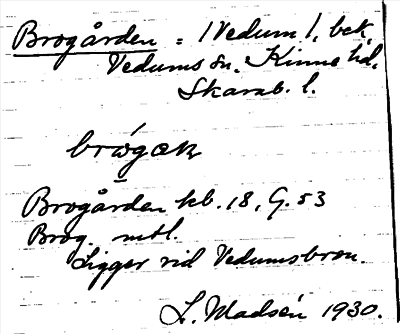 Brogården = / Vedum /, bek.
Vedums sn. Kinne hd.
Skarab. l.
Brogården kb. 18, G. 53
Brog. mtl.
Ligger vid Vedumsbron.
L. Madsén 1930.